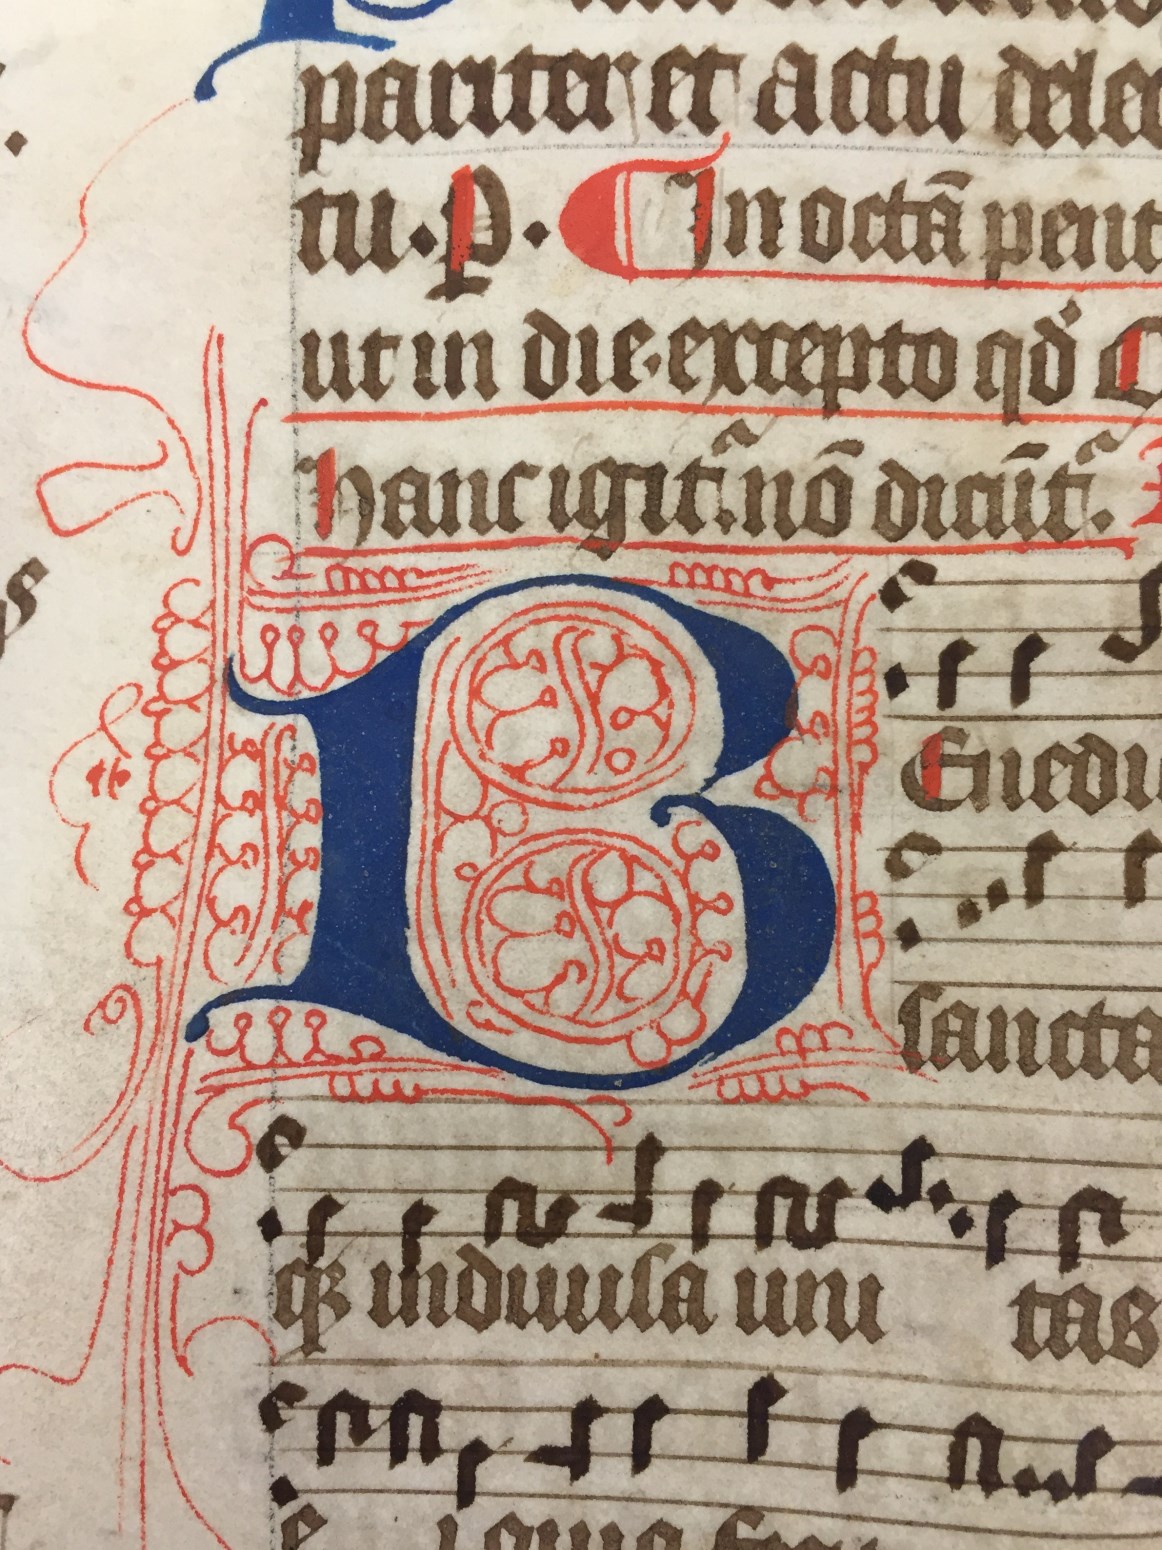 pariter et actu delec
tu. P. In octã pent
ut in die. excepto qd
hanc igit. nõ dicũt.
B
Enedi
sancta
q3 indiuisa uni tas